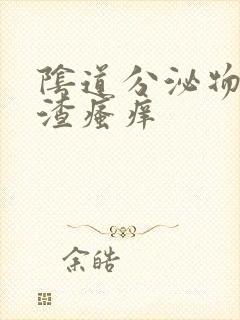 陰道分泌物
渣瘙痒
余皓